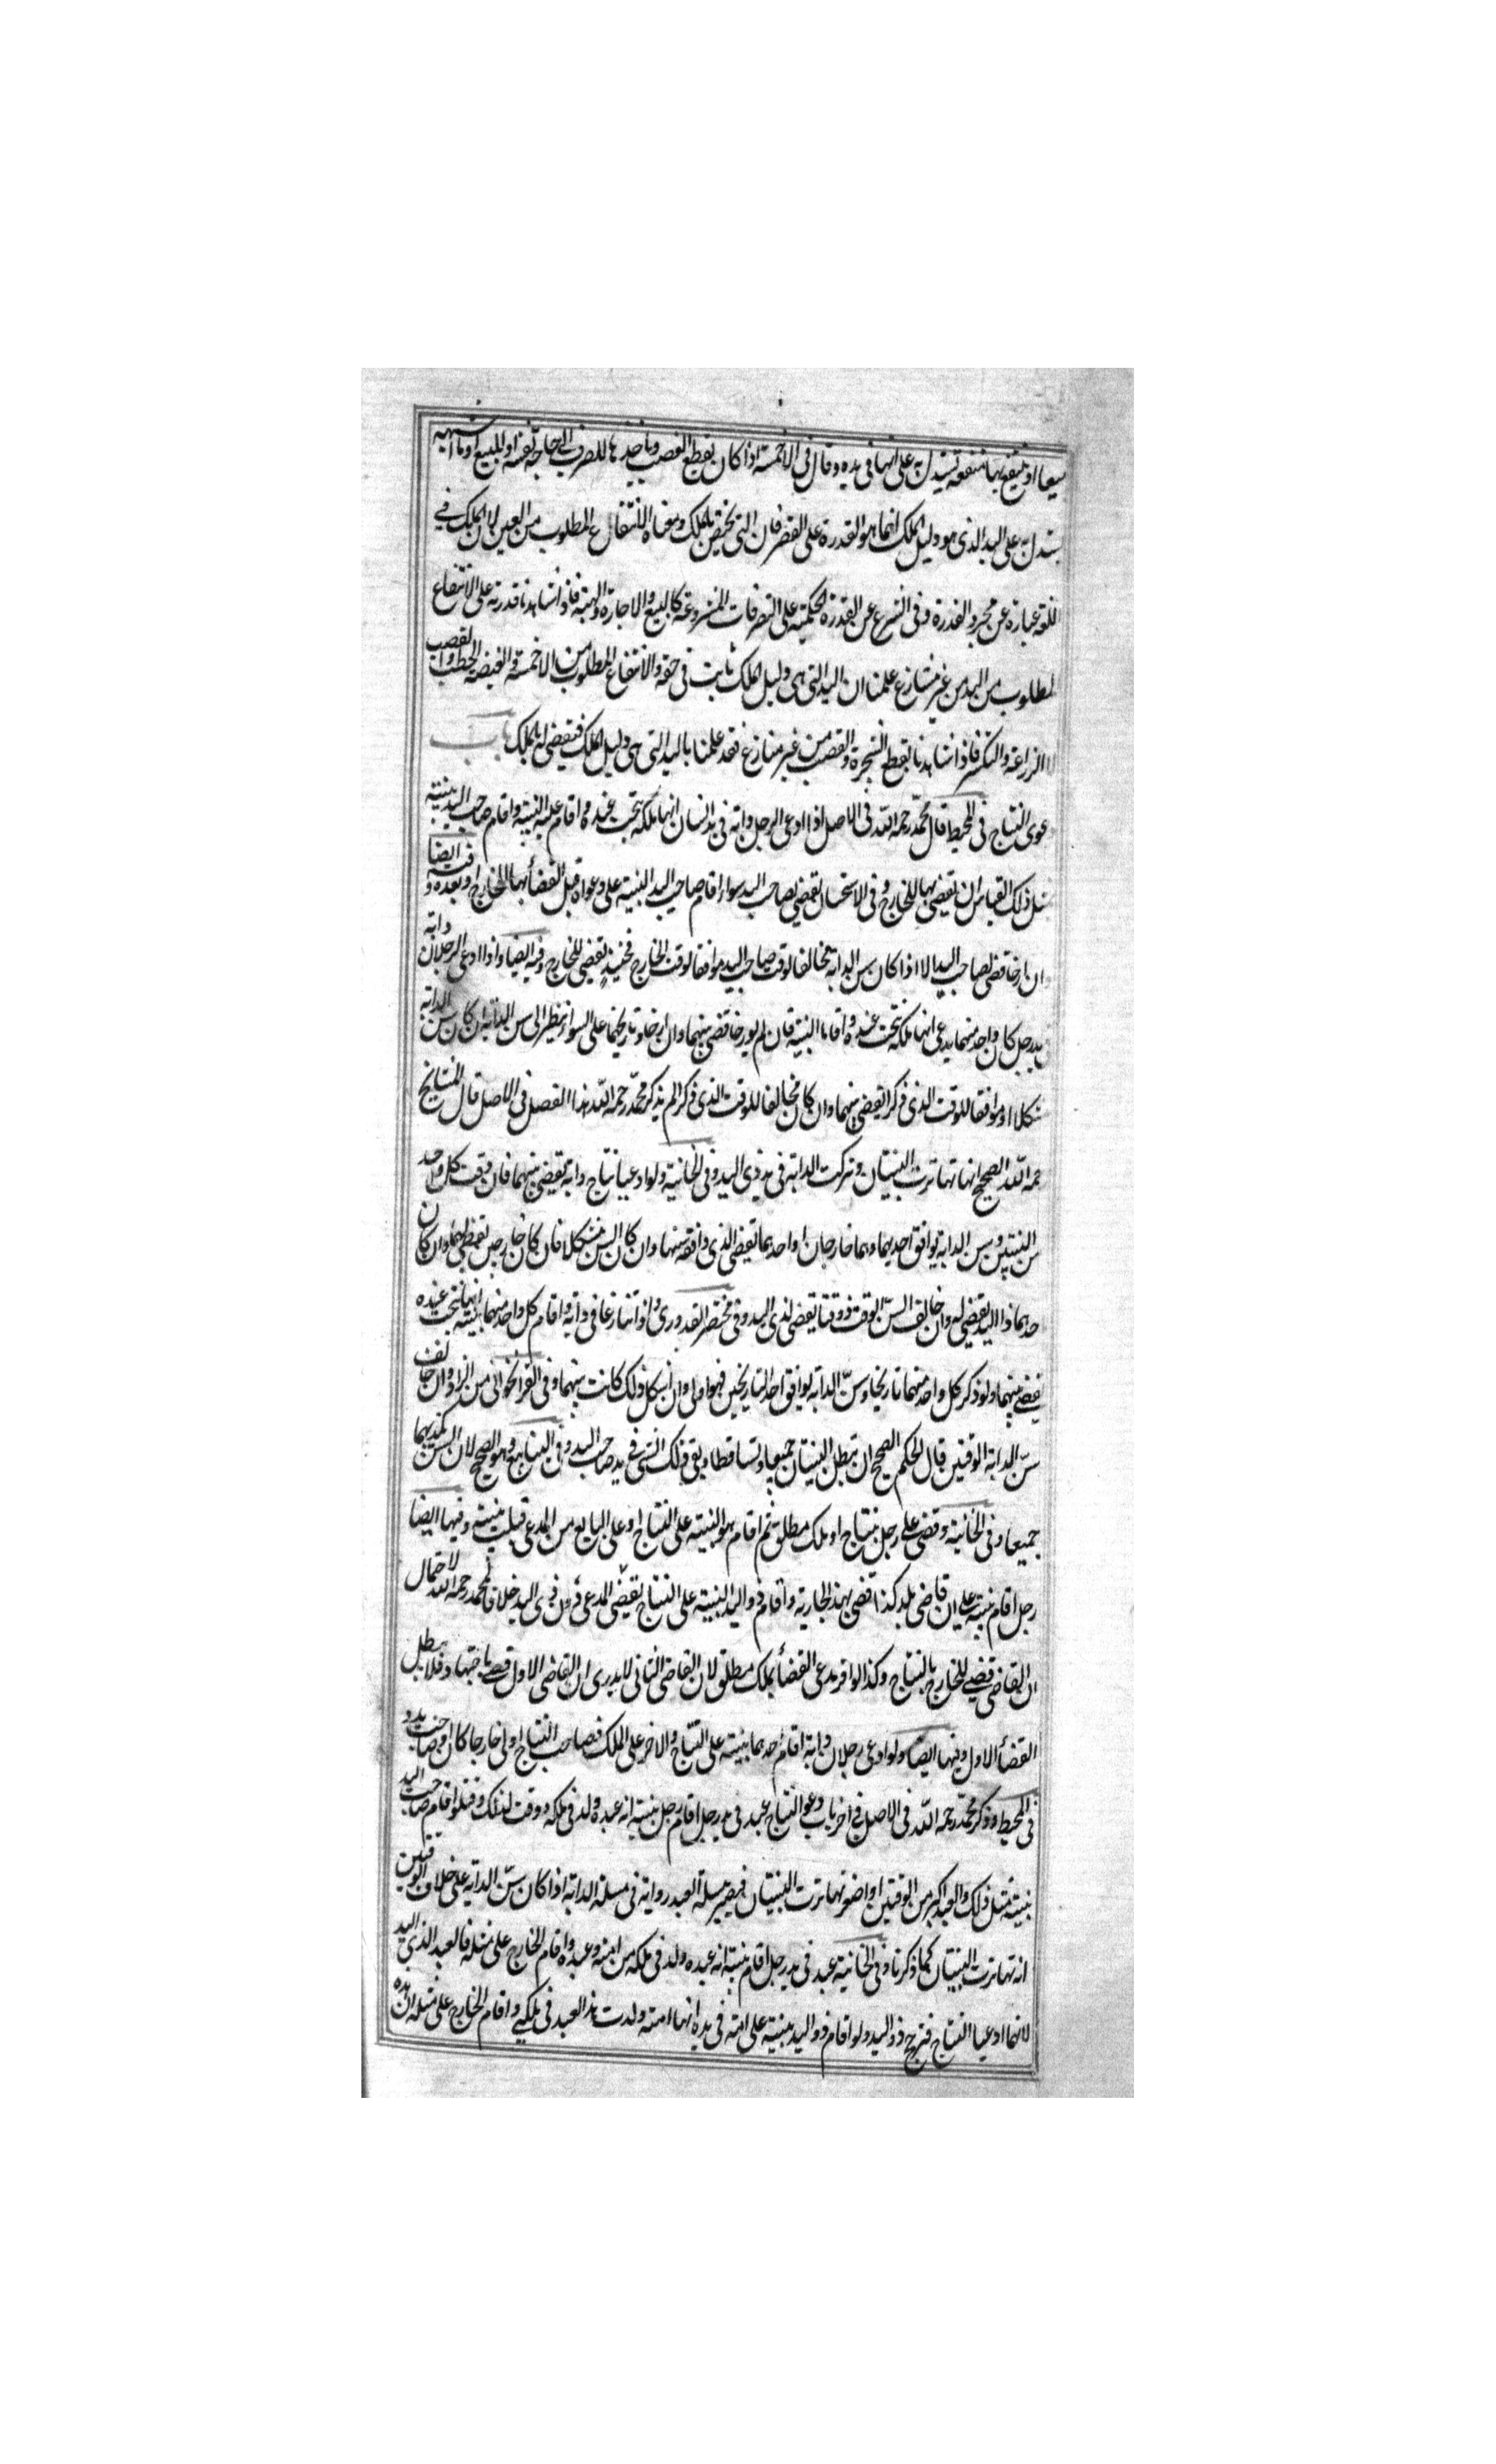 يبيعها او ينتفع بها منفعة يستدل به على انها في يده وقال في الاجمة اذا كان يقطع القصب وياخذ ها للصرف الى حاجة نفسه او للبيع او ما اشبهه
يستدل به على اليد الذي هو دليل الملك انما هو القدرة على التصرفات التي تختص بالملك ومعناه الانتفاع المطلوب من العين لان الملك في
اللغة عبارة عن مجرد القدرة وفى الشرع عن القدرة الحكمية على التصرفات المشروعة كالبيع والاجارة والهبة فاذا شاهدنا قدرته على الانتفاع
المطلوب من اليد من غير منازع علمنا ان اليد التى هى دليل الملك ثابت فى حقه والانتفاع المطلوب من الاجمة والغيضة الحطب والقصب
لا الزراعة والسكنى فاذا شاهدنا يقطع الشجرة والقصب من غير منازع فقد علمنا باليد التى هى دليل الملك فيقضى له بالملك باب
دعوى النتاج فى المحيط قال محمد رحمه الله فى الاصل اذا ادعى الرجل دابة فى يد انسان انها ملكه نتجت عنده واقام عليه البينة واقام صاحب اليد بينة
مثل ذلك القياس ان يقضى بها للخارج وفى الاستحسان يقضى لصاحب اليد سواء اقام صاحب اليد البينة على دعواه قبل القضاء بها للخارج او بعده وفيه ايضا
ان ارخا قضى لصاحب اليد الا اذا كان سن الدابة مخالفا لوقت صاحب اليد موافقا لوقت الخارج فحينئذ يقضى للخارج وفيه ايضا واذا ادعى الرجلان دابة
فى يد رجل كان واحد منهما يدعى انها ملكه نتجت عنده واقاما البينة فان لم يورخا قضى بينهما وان ارخا وتاريخهما على السواء ينظر الى سن الدابة ان كان سن الدابة
مشكلا او موافقا للوقت الذى ذكرا يقضى بينهما وان كان مخالفا للوقت الذى ذكرا لم يذكر محمد رحمه الله هذا الفصل فى الاصل قال المشايخ
رحمه الله الصحيح انها تهاترت البينتان وتركت الدابة فى يد ذى اليد وفى الخانية ولو ادعيا نتاج دابة يقضى بينهما فان وقت كل واحد
من البينتين وسن الدابة يوافق احديهما وهما خارجان او احدهما يقضى الذى وافقه سنها وان كان السن مشكلا فان كان خارجين يقضى لهما وان كان
احدهما ذا اليد يقضى له وان خالف السن الوقت ذو وقتا يقضى لذى اليد وفى مختصر القدورى واذا تنازعا فى دابة واقام كل واحد منهما بينة انها نتجت عنده
يقضى بينهما ولو ذكر كل واحد منهما تاريخا وسن الدابة يوافق احد التاريخين فهو اولى وان اشكل ذلك كانت بينهما وفى القراخوانى من الزاد وان خالف
سن الدابة الوقتين قال الحكم الصحيح ان تبطل البينتان جميعا وتساقطا ويبقى ذلك الشى فى يد صاحب اليد وفى الينابيع وهو الصحيح لان السن يكذبهما
جميعا وفى الخانية وقضى على رجل بنتاج او ملك مطلق ثم اقام هو البينة على النتاج او على البايع من المدعى قبلت بينته وفيها ايضا
رجل اقام بينة على ان قاضى بلد كذا قضى بهذه الجارية واقام ذو اليد البينة على النتاج يقضى للمدعى دون ذى اليد خلافا لمحمد رحمه الله لاحتمال
ان القاضى قضى للخارج بالنتاج وكذا لو اقر مدعى القضاء بملك مطلق لان القاضى الثانى لا يدرى ان القاضى الاول قضى باجتهاده فلا يبطل
القضاء الاول وفيها ايضا ولو ادعى رجلان دابة اقام احدهما بينة على النتاج والاخر على الملك فصاحب النتاج اولى خارجا كان او صاحب يد و
فى المحيط وذكر محمد رحمه الله فى الاصل فى اخر باب دعوى النتاج عبد فى يد رجل اقام رجل بينة انه عبده ولد فى ملكه ووقت لذلك وقتا واقام صاحب اليد
بينة مثل ذلك والعبد اكبر من الوقتين او اصغر تهاترت البينتان فيصير مسئلة العبد رواية فى مسئلة الدابة اذا كان سن الدابة على خلاف الوقتين
انه تهاترت البينتان كما ذكرنا وفى الخانية عبد فى يد رجل اقام بينة انه عبده ولد فى ملكه من امته وعبده واقام الخارج على مثله فالعبد الذى اليد
لانهما ادعيا النتاج فترجح ذو اليد ولو اقام ذو اليد بينة على امة فى يده انها امته ولدت هذا العبد فى ملكه واقام الخارج على مثله ان هذه